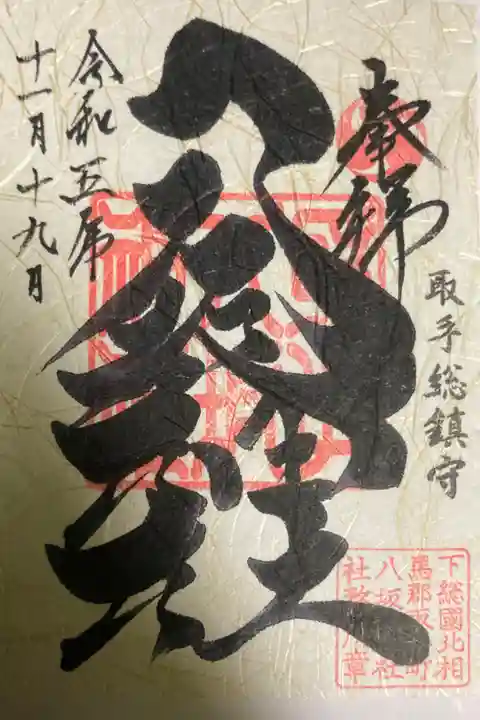 奉拝
取手総鎮守
八坂神社
令和五年
十一月十九日
下総國北相
馬郡取手町
八坂神社
社務所章